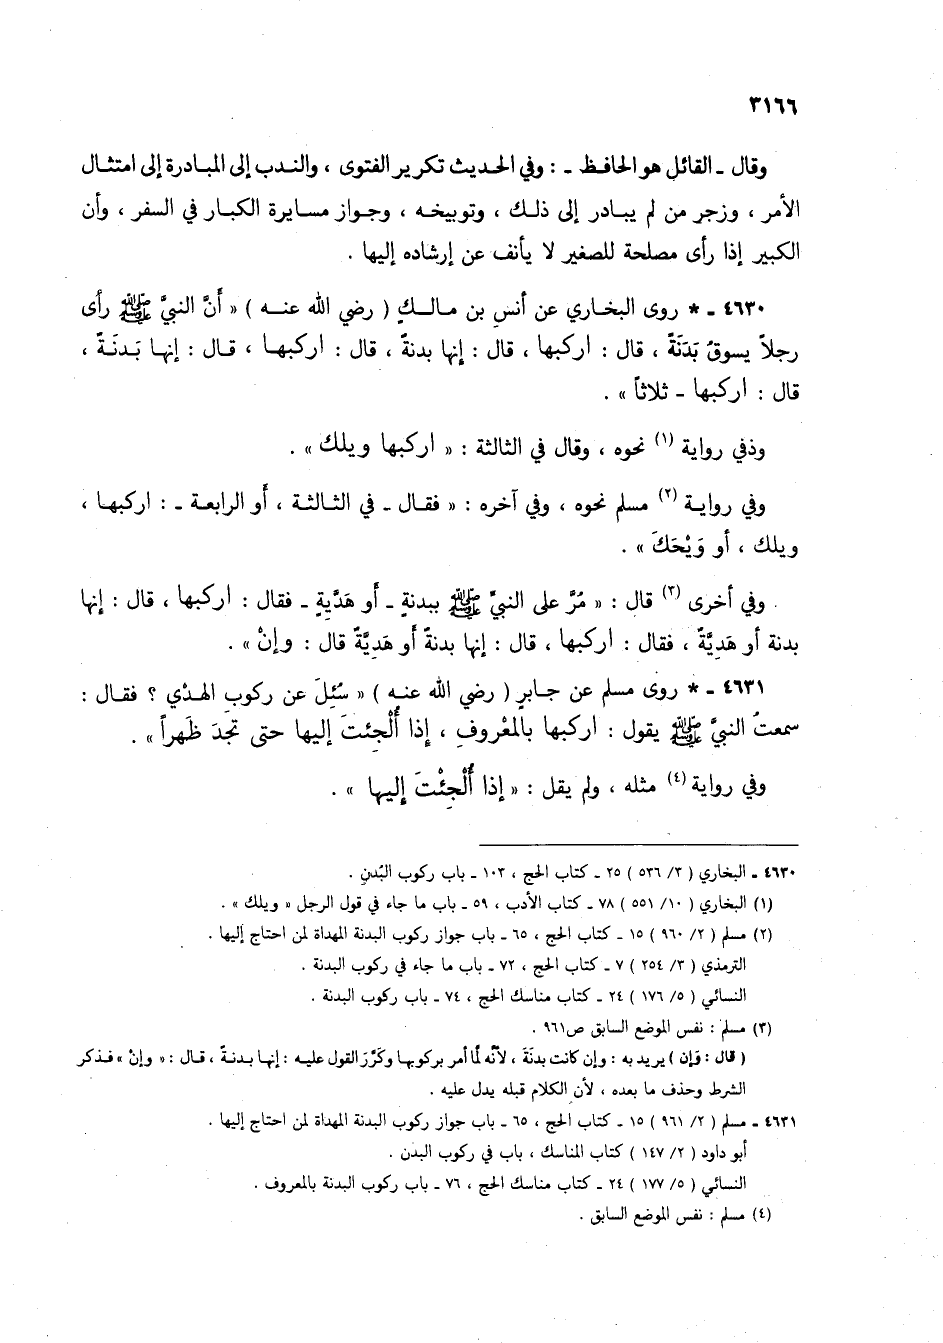 ٣١٦٦
وقال ـ القائل هو الحافظ ـ : وفي الحديث تكرير الفتوى ، والندب إلى المبادرة إلى امتثال
الأمر ، وزجر من لم يبادر إلى ذلك ، وتوبيخه ، وجواز مسايرة الكبار في السفر ، وأن
الكبير إذا رأى مصلحة للصغير لا يأنف عن إرشاده إليها .
٤٦٣٠ ـ * روى البخاري عن أنسِ بن مالكٍ ( رضي الله عنه ) « أَنَّ النبيَّ ﷺ رأى
رجلاً يسوقُ بَدَنَةً ، قال : اركبها ، قال : إنها بدنةً ، قال : اركبها ، قال : إنها بَدنَةً ،
قال : اركبها ـ ثلاثاً » .
وذفي رواية (١) نحوه ، وقال في الثالثة : « اركبها ويلك » .
وفي رواية (٢) مسلم نحوه ، وفي آخره : « فقال ـ في الثالثة ، أو الرابعة ـ : اركبها ،
ويلك ، أو وَيْحَكَ » .
وفي أخرى (٣) قال : « مُرَّ على النبيِّ ﷺ ببدنةٍ ـ أو هَدْيةٍ ـ فقال : اركبها ، قال : إنها
بدنة أو هَدِيَّةً ، فقال : اركبها ، قال : إنها بدنةً أو هَدِيَّةً قال : وإنْ » .
٤٦٣١ ـ * روى مسلم عن جابرٍ ( رضي الله عنه ) « سُئِلَ عن ركوبِ الهدْي ؟ فقال :
سمعتُ النبيَّ ﷺ يقول : اركبها بالمعْروفِ ، إِذا أُلْجِئتَ إليها حتى تجدَ ظَهراً » .
وفي رواية (٤) مثله ، ولم يقل : « إذا أُلْجِئْتَ إِليها » .
٤٦٣٠ ـ البخاري ( ٣/ ٥٣٦ ) ٢٥ ـ كتاب الحج ، ١٠٣ ـ باب ركوب البُدنِ .
(١) البخاري ( ١٠/ ٥٥١ ) ٧٨ ـ كتاب الأدب ، ٥٩ ـ باب ما جاء في قول الرجل « ويلك » .
(٢) مسلم ( ٢/ ٩٦٠ ) ١٥ ـ كتاب الحج ، ٦٥ ـ باب جواز ركوب البدنة المهداة لمن احتاج إليها .
الترمذي ( ٣/ ٢٥٤ ) ٧ ـ كتاب الحج ، ٧٢ ـ باب ما جاء في ركوب البدنة .
النسائي ( ٥/ ١٧٦ ) ٢٤ ـ كتاب مناسك الحج ، ٧٤ ـ باب ركوب البدنة .
(٣) مسلم : نفس الموضع السابق ص٩٦١ .
( قال : وَإن ) يريد به : وإن كانت بدنَة ، لأنَّه لمَّا أمر بركوبها وكَرَّرَ القول عليه : إنها بدنةً ، قال : « وإنْ » فذكر
الشرط وحذف ما بعده ، لأن الكلام قبله يدل عليه .
٤٦٣١ ـ مسلم ( ٢/ ٩٦١ ) ١٥ ـ كتاب الحج ، ٦٥ ـ باب جواز ركوب البدنة المهداة لمن احتاج إليها .
أبو داود ( ٢/ ١٤٧ ) كتاب المناسك ، باب في ركوب البدن .
النسائي ( ٥/ ١٧٧ ) ٢٤ ـ كتاب مناسك الحج ، ٧٦ ـ باب ركوب البدنة بالمعروف .
(٤) مسلم : نفس الموضع السابق .